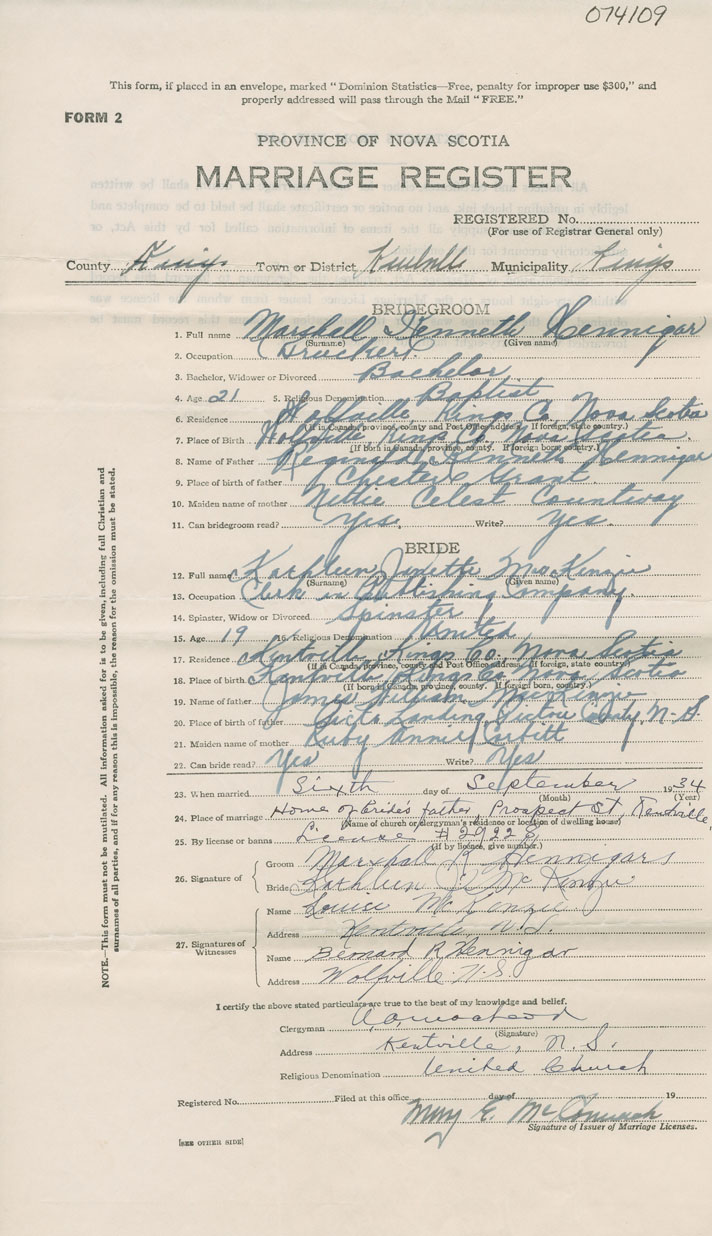 074109
This form, if placed in an envelope, marked "Dominion Statistics—Free, penalty for improper use $300," and
properly addressed will pass through the Mail "FREE."
FORM 2
PROVINCE OF NOVA SCOTIA
MARRIAGE REGISTER
REGISTERED No.
(For use of Registrar General only)
County Kings Town or District Kentville Municipality Kings
BRIDEGROOM
1. Full name Marshall Kenneth Hennigar
(Surname) (Given name)
2. Occupation Trucker.
3. Bachelor, Widower or Divorced Bachelor
4. Age 21 5. Religious Denomination Baptist
6. Residence Wolfville, Kings Co, Nova Scotia
(If in Canada, province, county and Post Office address. If foreign, state country.)
7. Place of Birth Wolfville, Kings Co, Nova Scotia.
(If born in Canada, province, county. If foreign born, country.)
8. Name of Father Reginald Kenneth Hennigar
9. Place of birth of father Chester Grant
10. Maiden name of mother Nettie Celest Countway
11. Can bridegroom read? Yes. Write? Yes
BRIDE
12. Full name Kathleen Janette MacKenzie
(Surname) (Given name)
13. Occupation Clerk in Publishing Company.
14. Spinster, Widow or Divorced Spinster
15. Age 19 16. Religious Denomination United
17. Residence Kentville, Kings Co. Nova Scotia
(If in Canada, province, county and Post Office address. If foreign, state country.)
18. Place of birth Kentville, Kings Co, Nova Scotia
(If born in Canada, province, county. If foreign born, country.)
19. Name of father James William MacKenzie
20. Place of birth of father Landing, N-S
21. Maiden name of mother Ruby Annie Corbett
22. Can bride read? Yes Write? Yes
23. When married Sixth day of September 1934
(Month) (Year)
24. Place of marriage Home of bride's father, Prospect St, Kentville,
(Name of church or clergyman's residence or location of dwelling house)
25. By license or banns License # 29228
(If by licence, give number.)
26. Signature of
Groom Marshall K Hennigar
Bride Kathleen J. McKenzie
27. Signatures of Witnesses
Name Louise McKenzie
Address Kentville, N.S.
Name Bernard R Hennigar
Address Wolfville N.S.
I certify the above stated particulars are true to the best of my knowledge and belief.
Clergyman
(Signature)
Address Kentville, N.S.
Religious Denomination United Church
Registered No. Filed at this office day of 19
Mary E.
Signature of Issuer of Marriage Licenses.
[SEE OTHER SIDE]
NOTE.—This form must not be mutilated. All information asked for is to be given, including full Christian and
surnames of all parties, and if for any reason this is impossible, the reason for the omission must be stated.